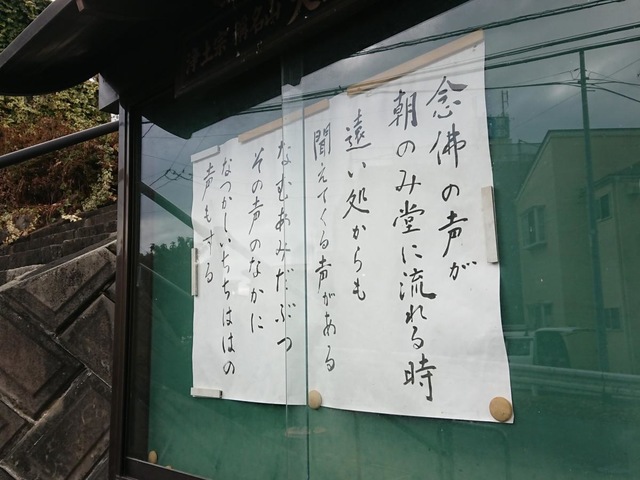 念佛の声が
朝のみ堂に流れる時
遠い処からも
聞えてくる声がある
なむあみだぶつ
その声のなかに
なつかしいちちははの
声もする
浄土宗